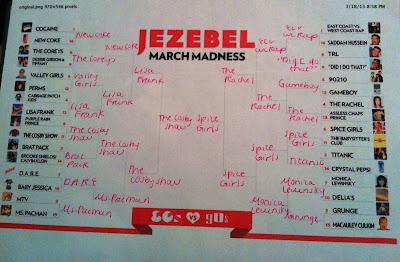 original.png 970×546 pixels
3/18/13 8:58 PM
JEZEBEL
MARCH MADNESS
COCAINE
NEW COKE
THE COREYS
DEBBIE GIBSON &
TIFFANY
VALLEY GIRLS
PERMS
CABBAGE PATCH
KIDS
LISA FRANK
PURPLE RAIN
PRINCE
THE COSBY SHOW
BRAT PACK
BROOKE SHIELDS/
CALVIN KLEIN
D.A.R.E.
BABY JESSICA
MTV
MS. PACMAN
New Coke
The Coreys
Valley
Girls
Lisa
Frank
The Cosby
Show
Brat
Pack
D.A.R.E
Ms. Pacman
New Coke
Lisa Frank
The Cosby
Show
Ms. Pacman
Lisa
Frank
The
Cosby Show
The Cosby
Show
Spice
Girls
The
Rachel
Spice
Girls
The
Rachel
Spice
Girls
Monica
Lewinsky
EC v
WC Rap
"Did I do
that?"
Gameboy
The
Rachel
Spice
Girls
Titanic
Monica
Lewinsky
Grunge
EAST COAST VS.
WEST COAST RAP
SADDAM HUSSEIN
TRL
"DID I DO THAT?"
90210
GAMEBOY
THE RACHEL
ASSLESS CHAPS
PRINCE
SPICE GIRLS
THE BABYSITTER'S
CLUB
TITANIC
CRYSTAL PEPSI
MONICA
LEWINSKY
DELIA'S
GRUNGE
MACAULEY CULKIN
80s VS 90s